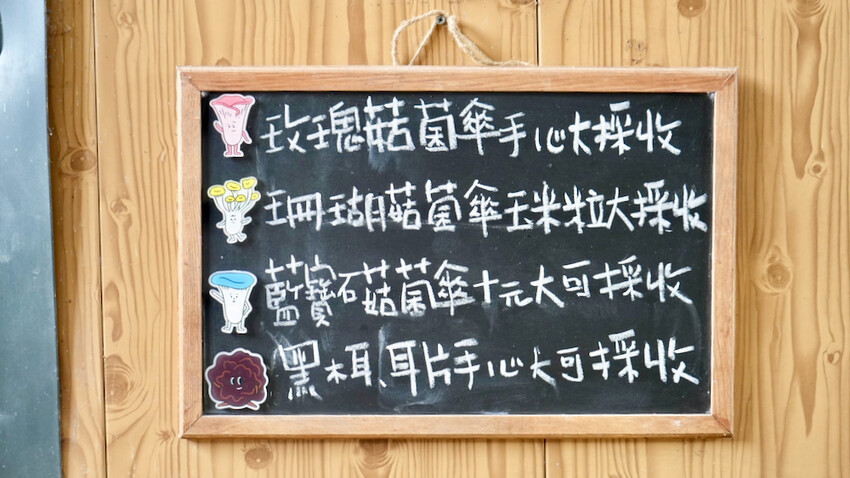 玫瑰菇菌傘手心大採收
珊瑚菇菌傘玉米粒大採收
藍寶石菇菌傘十元大可採收
黑木耳、耳片手心大可採收